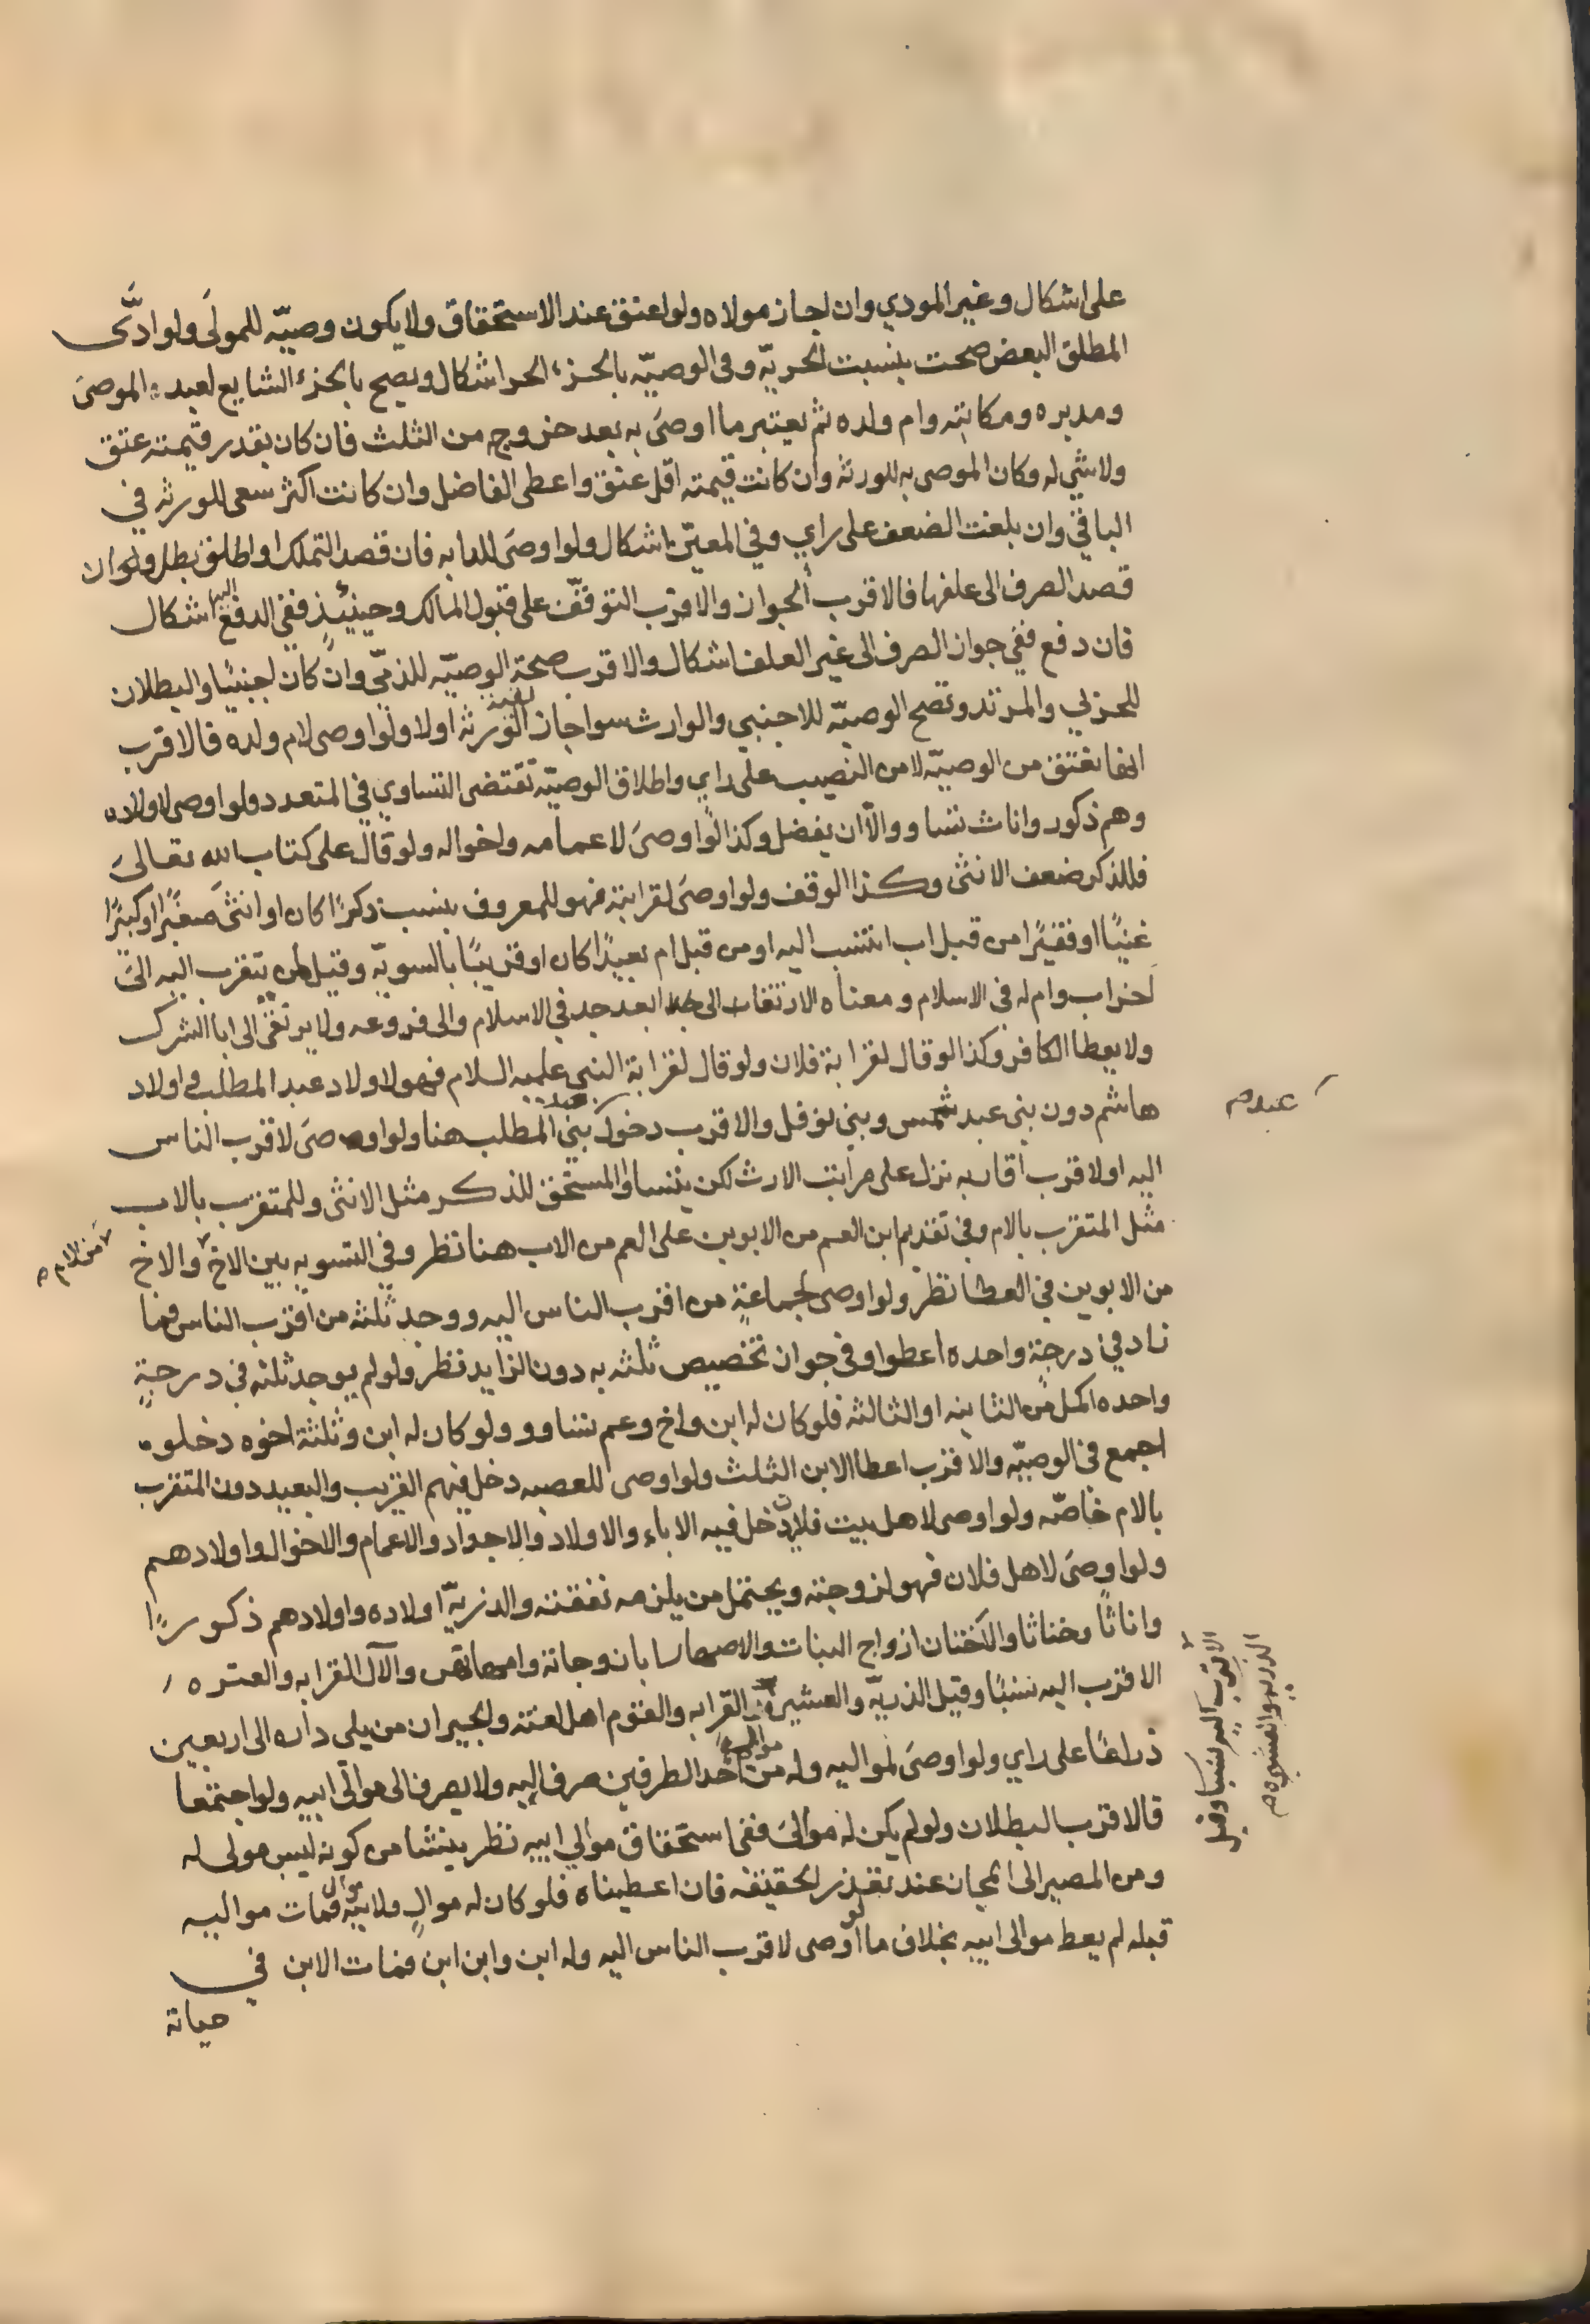 على اشكال وغير المودي وان اجاز مولاه ولو اعتق عند الاستحقاق ولا يكون وصيّه للمولَى ولو ادّى
المطلق البعض صحت بنسبت الحريّه وفى الوصيّه بالجزء الحر اشكال ويصح بالجزء الشايع لعبده الموصىَ
ومدبره ومكاتبته وام ولده ثم يعتبر ما اوصىَ به بعد خروجه من الثلث فان كان بقدر قيمته عتق
ولا شي له وكان الموصى به للورثه وان كانت قيمته اقل عتق واعطى الفاضل وان كانت اكثر سعى للورثه في
الباقي وان بلغت الضعف على راي وفي المعيّن اشكال ولو اوصىَ للدابه فان قصد التملك او اطلق بطل ولو ان
قصد الصرف الى علفها فالاقرب الجواز والاقرب التوقفّ على قبول المالك وحينئذٍ ففي الدفع اليه اشكال
فان دفع ففي جواز الصرف الى غير العلف اشكال والاقرب صحة الوصيّه للذمّي وان كان اجنبيًا والبطلان
للحربي والمرتد وتصح الوصيّه للاجنبي والوارث سوا اجاز الورثه اولا ولو اوصى لام ولده فالاقرب
انها تعتق من الوصيّه لا من النصيب على راي واطلاق الوصيّه تقتضى التساوي في المتعدد ولو اوصى لاولاده
وهم ذكور واناث تساووا الّا ان يفضل وكذا لو اوصىَ لاعمامه واخواله ولو قال على كتاب الله تعالىَ
فللذكر ضعف الانثى وكذا الوقف ولو اوصىَ لقرابته فهو للمعروف بنسبه ذكرًا كان او انثىَ صغيرًا او كبيرًا
غنيًا او فقيرًا من قبل اب انتسب اليه او من قبل ام بعيدًا كان او قريبًا بالسويّه وقيل لمن يتقرب اليه الىَ
اخر اب وام له فى الاسلام ومعناه الارتقاء الى ابعد جد في الاسلام والى فروعه ولا يرتقى الى ابا الشرك
ولا يعطا الكافر وكذا لو قال لقرابة فلان ولو قال لقرابة النبي عليه السلام فهو لاولاد عبد المطلب واولاد
هاشم دون بني عبد شمس وبني نوفل والاقرب دخول بني المطلب هنا ولو اوصىَ لاقرب الناس
عبد صح
اليه او لاقرب اقاربه نزل على مراتب الارث لكن يتساوا المستحق للذكر مثل الانثى وللمتقرب بالاب
مثل المتقرب بالام وفى تقديم ابن العم من الابوين على العم من الاب هنا نظر وفي التسويه بين الاخ والاخ
من الام صح
من الابوين في العطا نظر ولو اوصى لجماعةٍ من اقرب الناس اليه ووجد ثلثه من اقرب الناس فما
زاد في درجةٍ واحده اعطوا وفى جواز تخصيص ثلثه به دون الزايد نظر ولو لم يوجد ثلثه في درجةٍ
واحده اكمل من الثانيه او الثالثه فلو كان له ابن واخ وعم تساووا ولو كان له ابن وثلثة اخوه دخلوا
اجمع فى الوصيّه والاقرب اعطا الابن الثلث ولو اوصى للعصبه دخل فيهم القريب والبعيد دون المتقرب
بالام خاصّه ولو اوصى لاهل بيت فلان دخل فيه الاباء والاولاد والاجداد والاعمام والاخوال واولادهم
ولو اوصىَ لاهل فلان فهو لزوجته ويحتمل من يلزمه نفقته والذريّه اولاده واولادهم ذكورًا
واناثًا وخناثا والاختان ازواج البنات والاصهار ابا زوجاته وامهاتهن والآل القرابه والعتره
الاقرب اليه نسبًا وقيل الذريّه والعشيره القرابه والقوم اهل لغته والجيران من يلى داره الى اربعين
الاقرب اليه نسبا وقيل
الذريه والعشيره صح
ذراعًا على راي ولو اوصىَ لمواليه وله موالي من احد الطرفين صرف اليه ولا يصرف الى موالى ابيه ولو اجتمعا
فالاقرب البطلان ولو لم يكن له موالىَ ففى استحقاق موالي ابيه نظر ينشا من كونه ليس مولى له
ومن المصير الى المجاز عند تعذر الحقيقه فان اعطيناه فلو كان له موالٍ ولابيه موال فمات مواليه
قبله لم يعط موالى ابيه بخلاف ما لو اوصى لاقرب الناس اليه وله ابن وابن ابن فمات الابن في
حياته